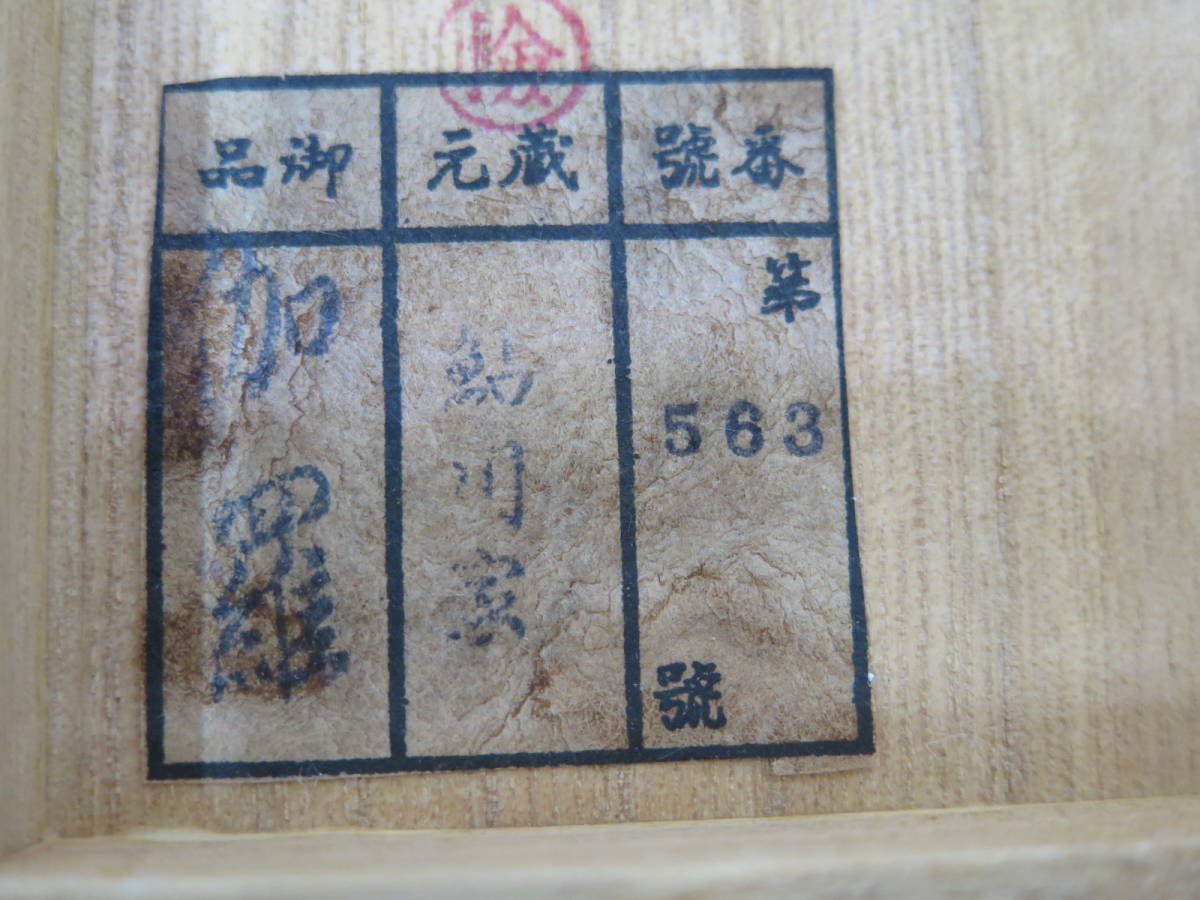 檢
番號
第
563
號
藏元
鮎川窯
御品
伽羅